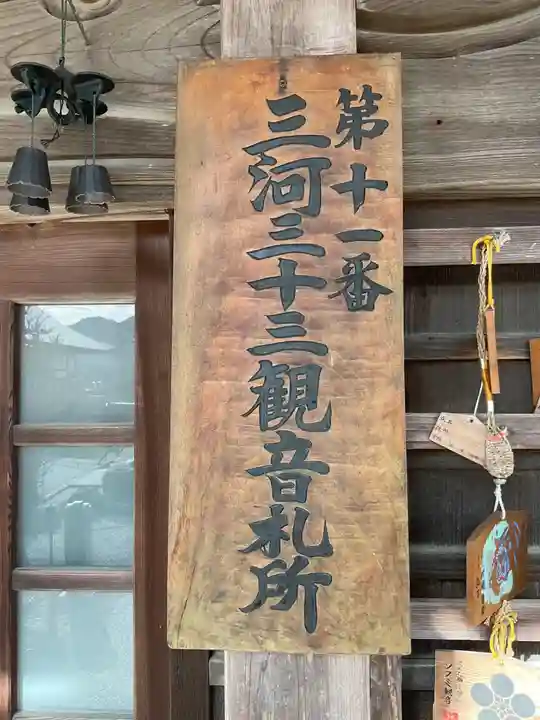 第十一番
三河三十三観音札所